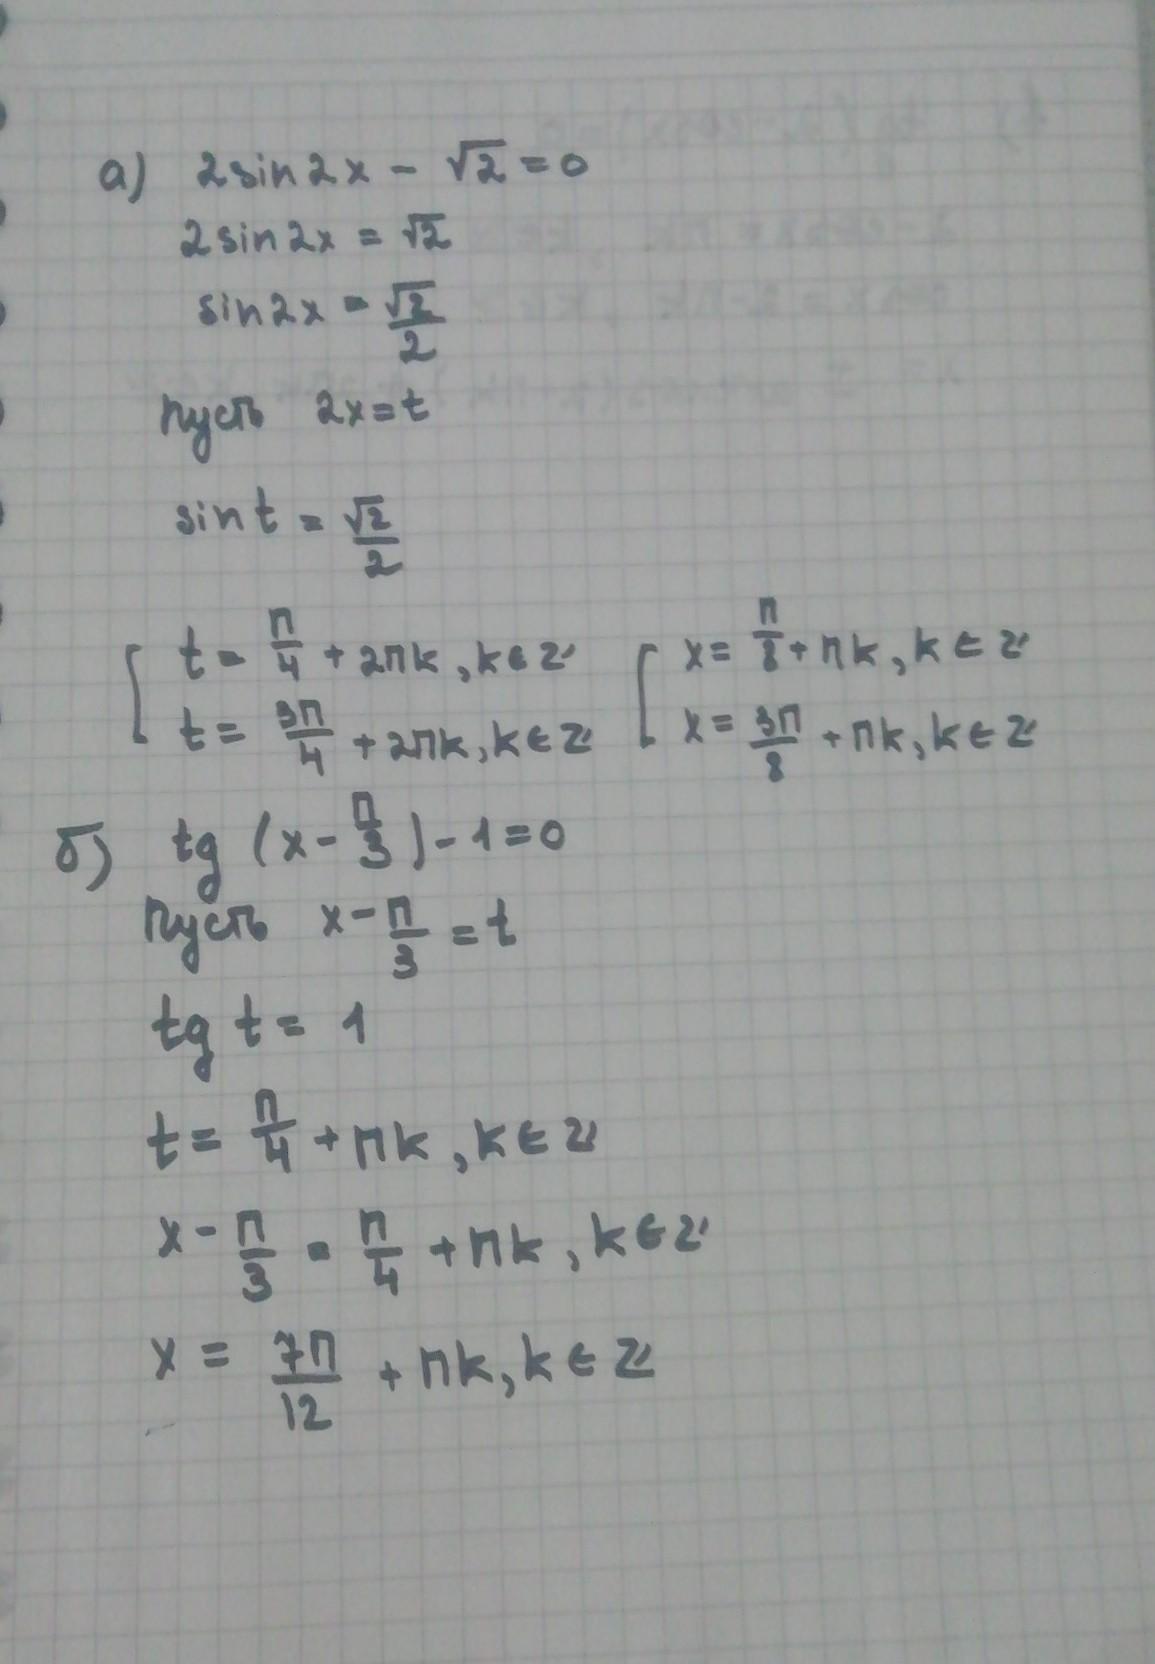 а) 2sin2x - √2 = 0
2sin2x = √2
sin2x = √2/2
Пусть 2x = t
sin t = √2/2
[ t = π/4 + 2πk, k ∈ Z [ x = π/8 + πk, k ∈ Z
t = 3π/4 + 2πk, k ∈ Z x = 3π/8 + πk, k ∈ Z
б) tg (x - π/3) - 1 = 0
Пусть x - π/3 = t
tg t = 1
t = π/4 + πk, k ∈ Z
x - π/3 = π/4 + πk, k ∈ Z
x = 7π/12 + πk, k ∈ Z